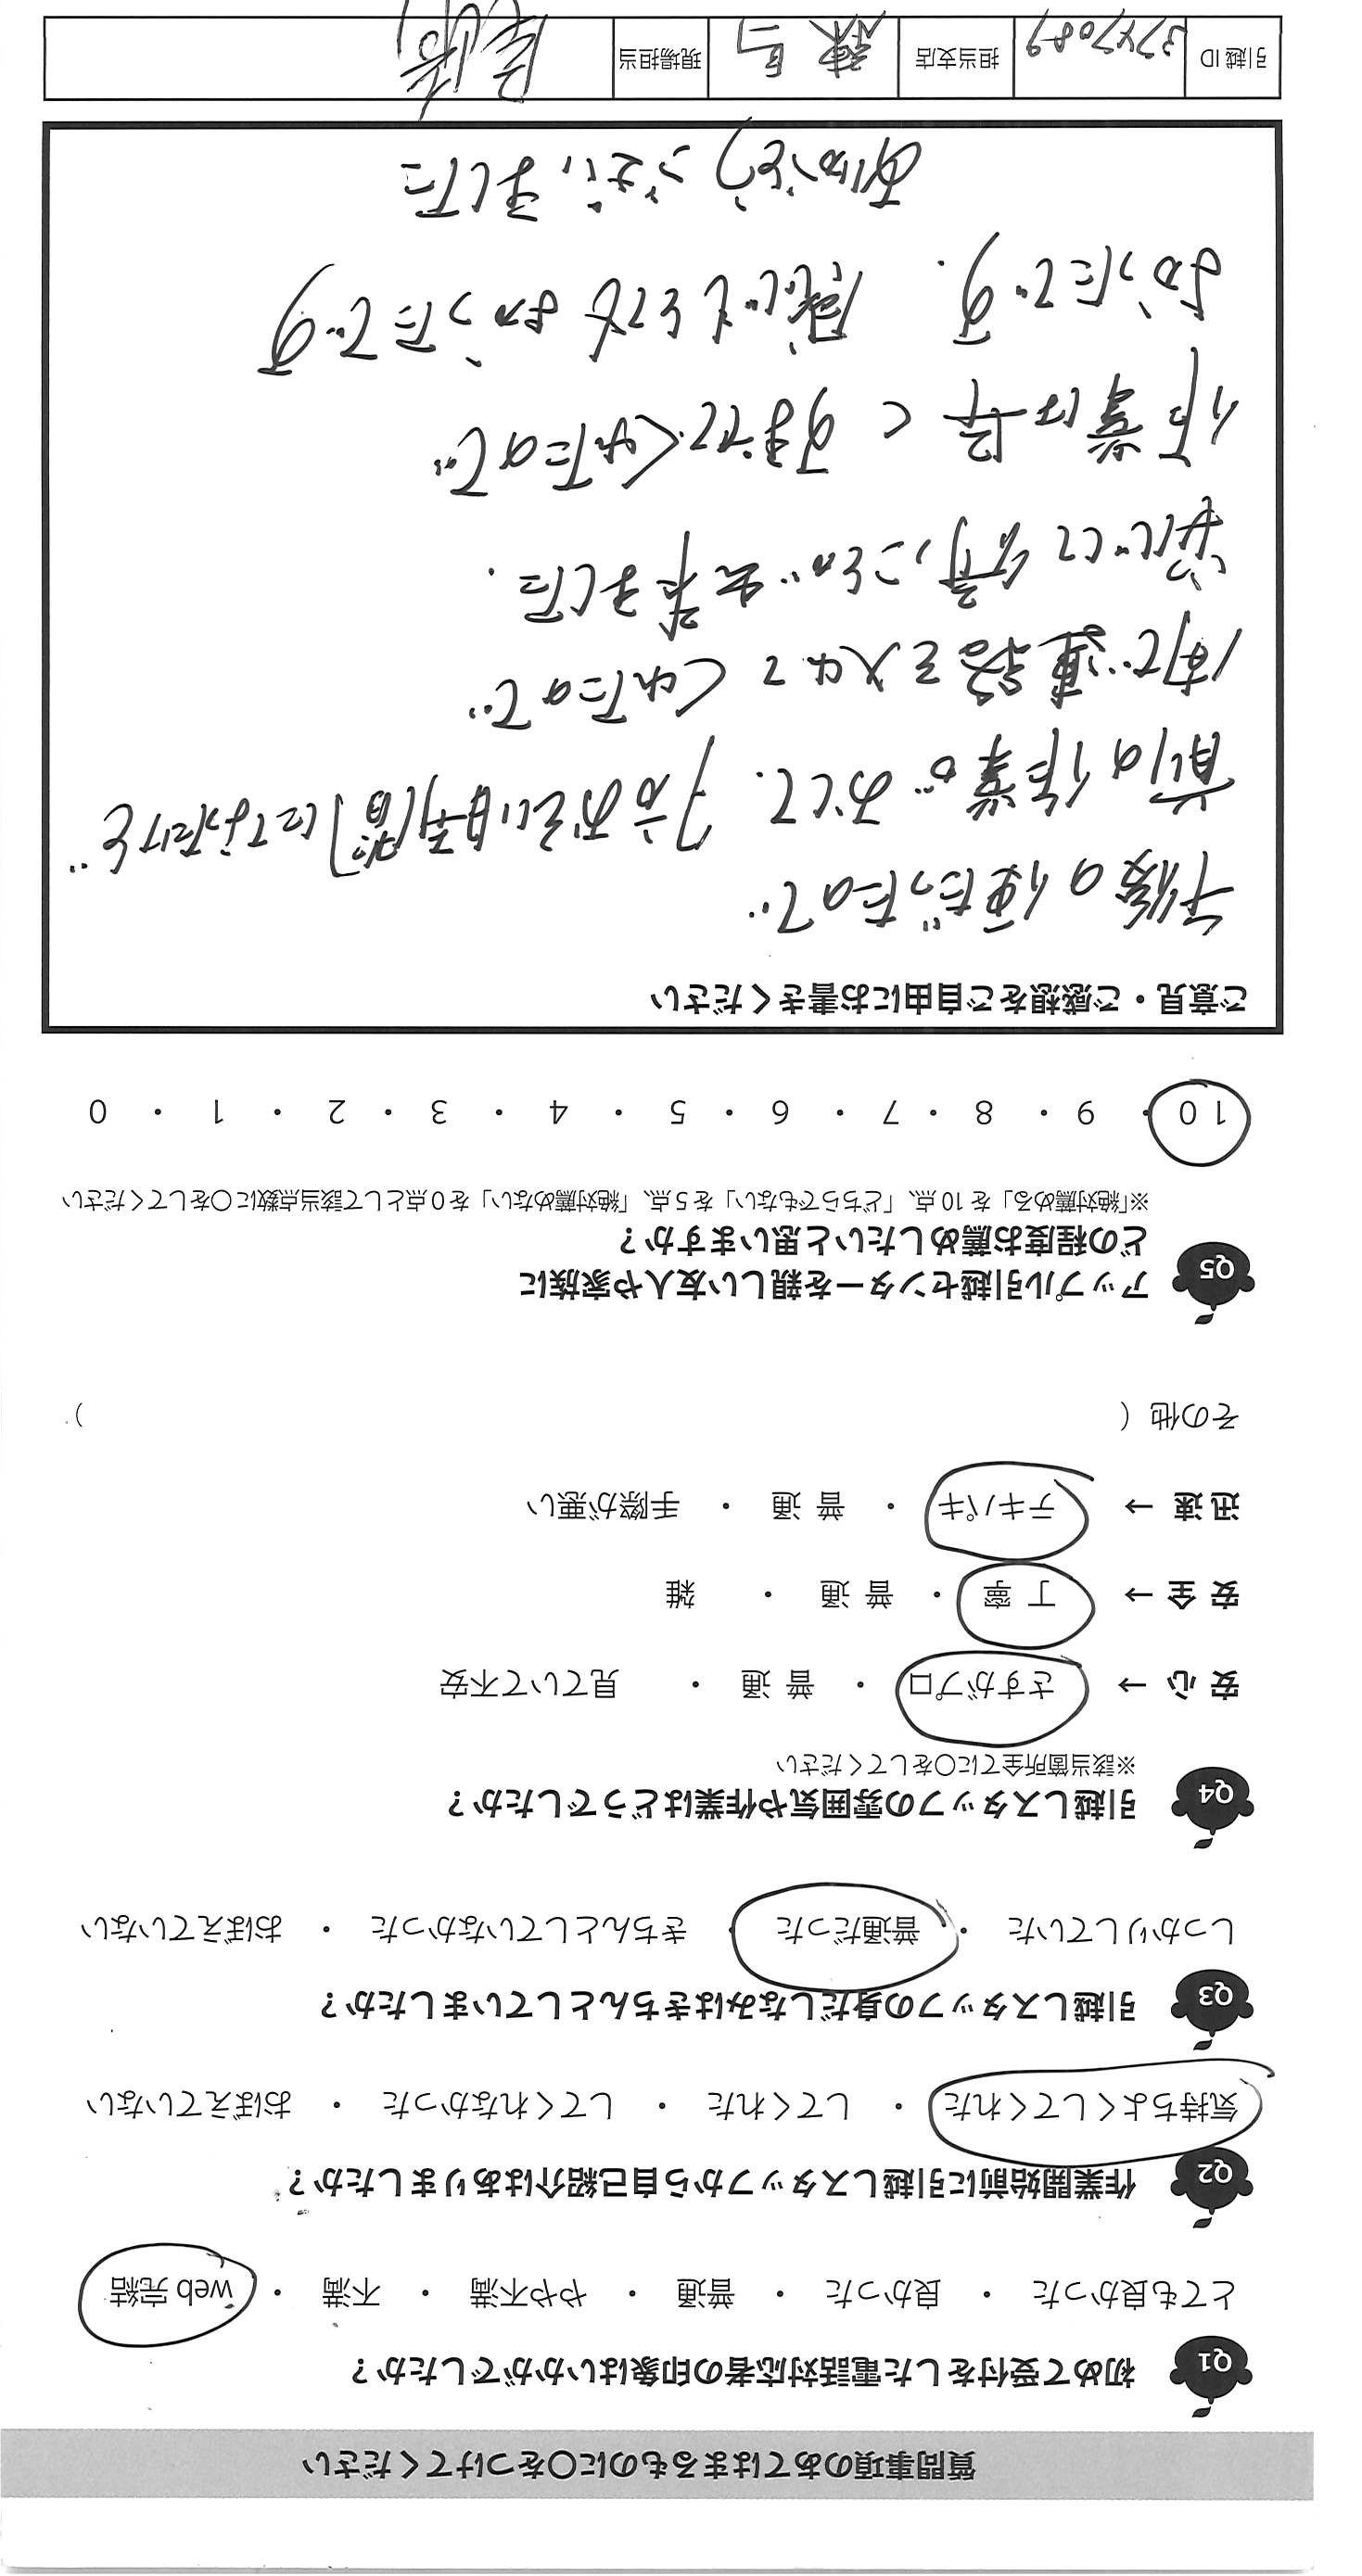 質問事項のあてはまるものに〇をつけてください
Q1 初めて受付をした電話対応者の印象はいかがでしたか？
とても良かった ・ 良かった ・ 普通 ・ やや不満 ・ 不満 ・ web 完結
Q2 作業開始前に引越しスタッフから自己紹介はありましたか？
気持ちよくしてくれた ・ してくれた ・ してくれなかった ・ おぼえていない
Q3 引越しスタッフの身だしなみはきちんとしていましたか？
しっかりしていた ・ 普通だった ・ きちんとしていなかった ・ おぼえていない
Q4 引越しスタッフの雰囲気や作業はどうでしたか？
※該当箇所全てに〇をしてください
安心 → さすがプロ ・ 普通 ・ 見ていて不安
安全 → 丁寧 ・ 普通 ・ 雑
迅速 → テキパキ ・ 普通 ・ 手際が悪い
その他（ ）
Q5 アップル引越センターを親しい友人や家族に
どの程度お薦めしたいと思いますか？
※「絶対薦める」を 10 点、「どちらでもない」を 5 点、「絶対薦めない」を 0 点として該当点数に〇をしてください
10 ・ 9 ・ 8 ・ 7 ・ 6 ・ 5 ・ 4 ・ 3 ・ 2 ・ 1 ・ 0
ご意見・ご感想をご自由にお書きください
午後の便だったので
前の作業がおして、おそい時間になったけど
何で連絡を入れてくれたので
安心して待つことが出来ました.
作業は早くすませてくれたので
よかったです. 感じもとてもよかったです
ありがとうございました
引越 ID 3747089 担当支店 練馬 現場担当